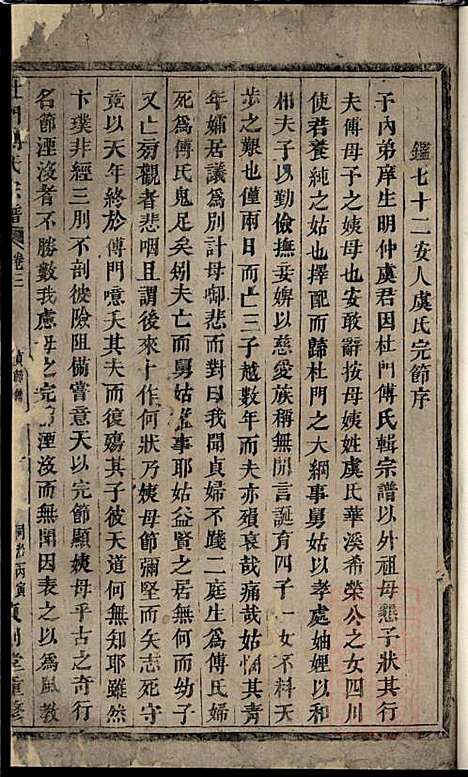 鑑七十二安人虞氏完節序
予內弟庠生明仲虞君因杜門傅氏輯宗譜以外祖母懇予狀其行
夫傅母予之姨母也安敢辭按母姨姓虞氏華溪希榮公之女四川
使君養純之姑也擇配而歸杜門之大綱事舅姑以孝處妯娌以和
相夫子以勤儉撫妾婢以慈愛族稱無閒言誕有四子一女不料天
步之艱也僅兩日而亡三子越數年而夫亦殞哀哉痛哉姑憫其青
年孀居議為別計母慟而對曰我聞貞婦不踐二庭生為傅氏婦
死為傅氏鬼足矣矧夫亡而舅姑事耶姑益賢之居無何而幼子
又亡旁觀者悲咽且謂後來卜作何狀乃姨母節彌堅而矢志死守
竟以天年終於傅門噫夭其夫而復殤其子彼天道何無知耶雖然
卞璞非經三刖不剖彼險阻備嘗意天以完節顯姨母乎古之奇行
名節湮沒者不勝數我慮母之完節湮沒而無聞因表之以為風教
杜門傅氏宗譜 卷二 同治丙寅 重修